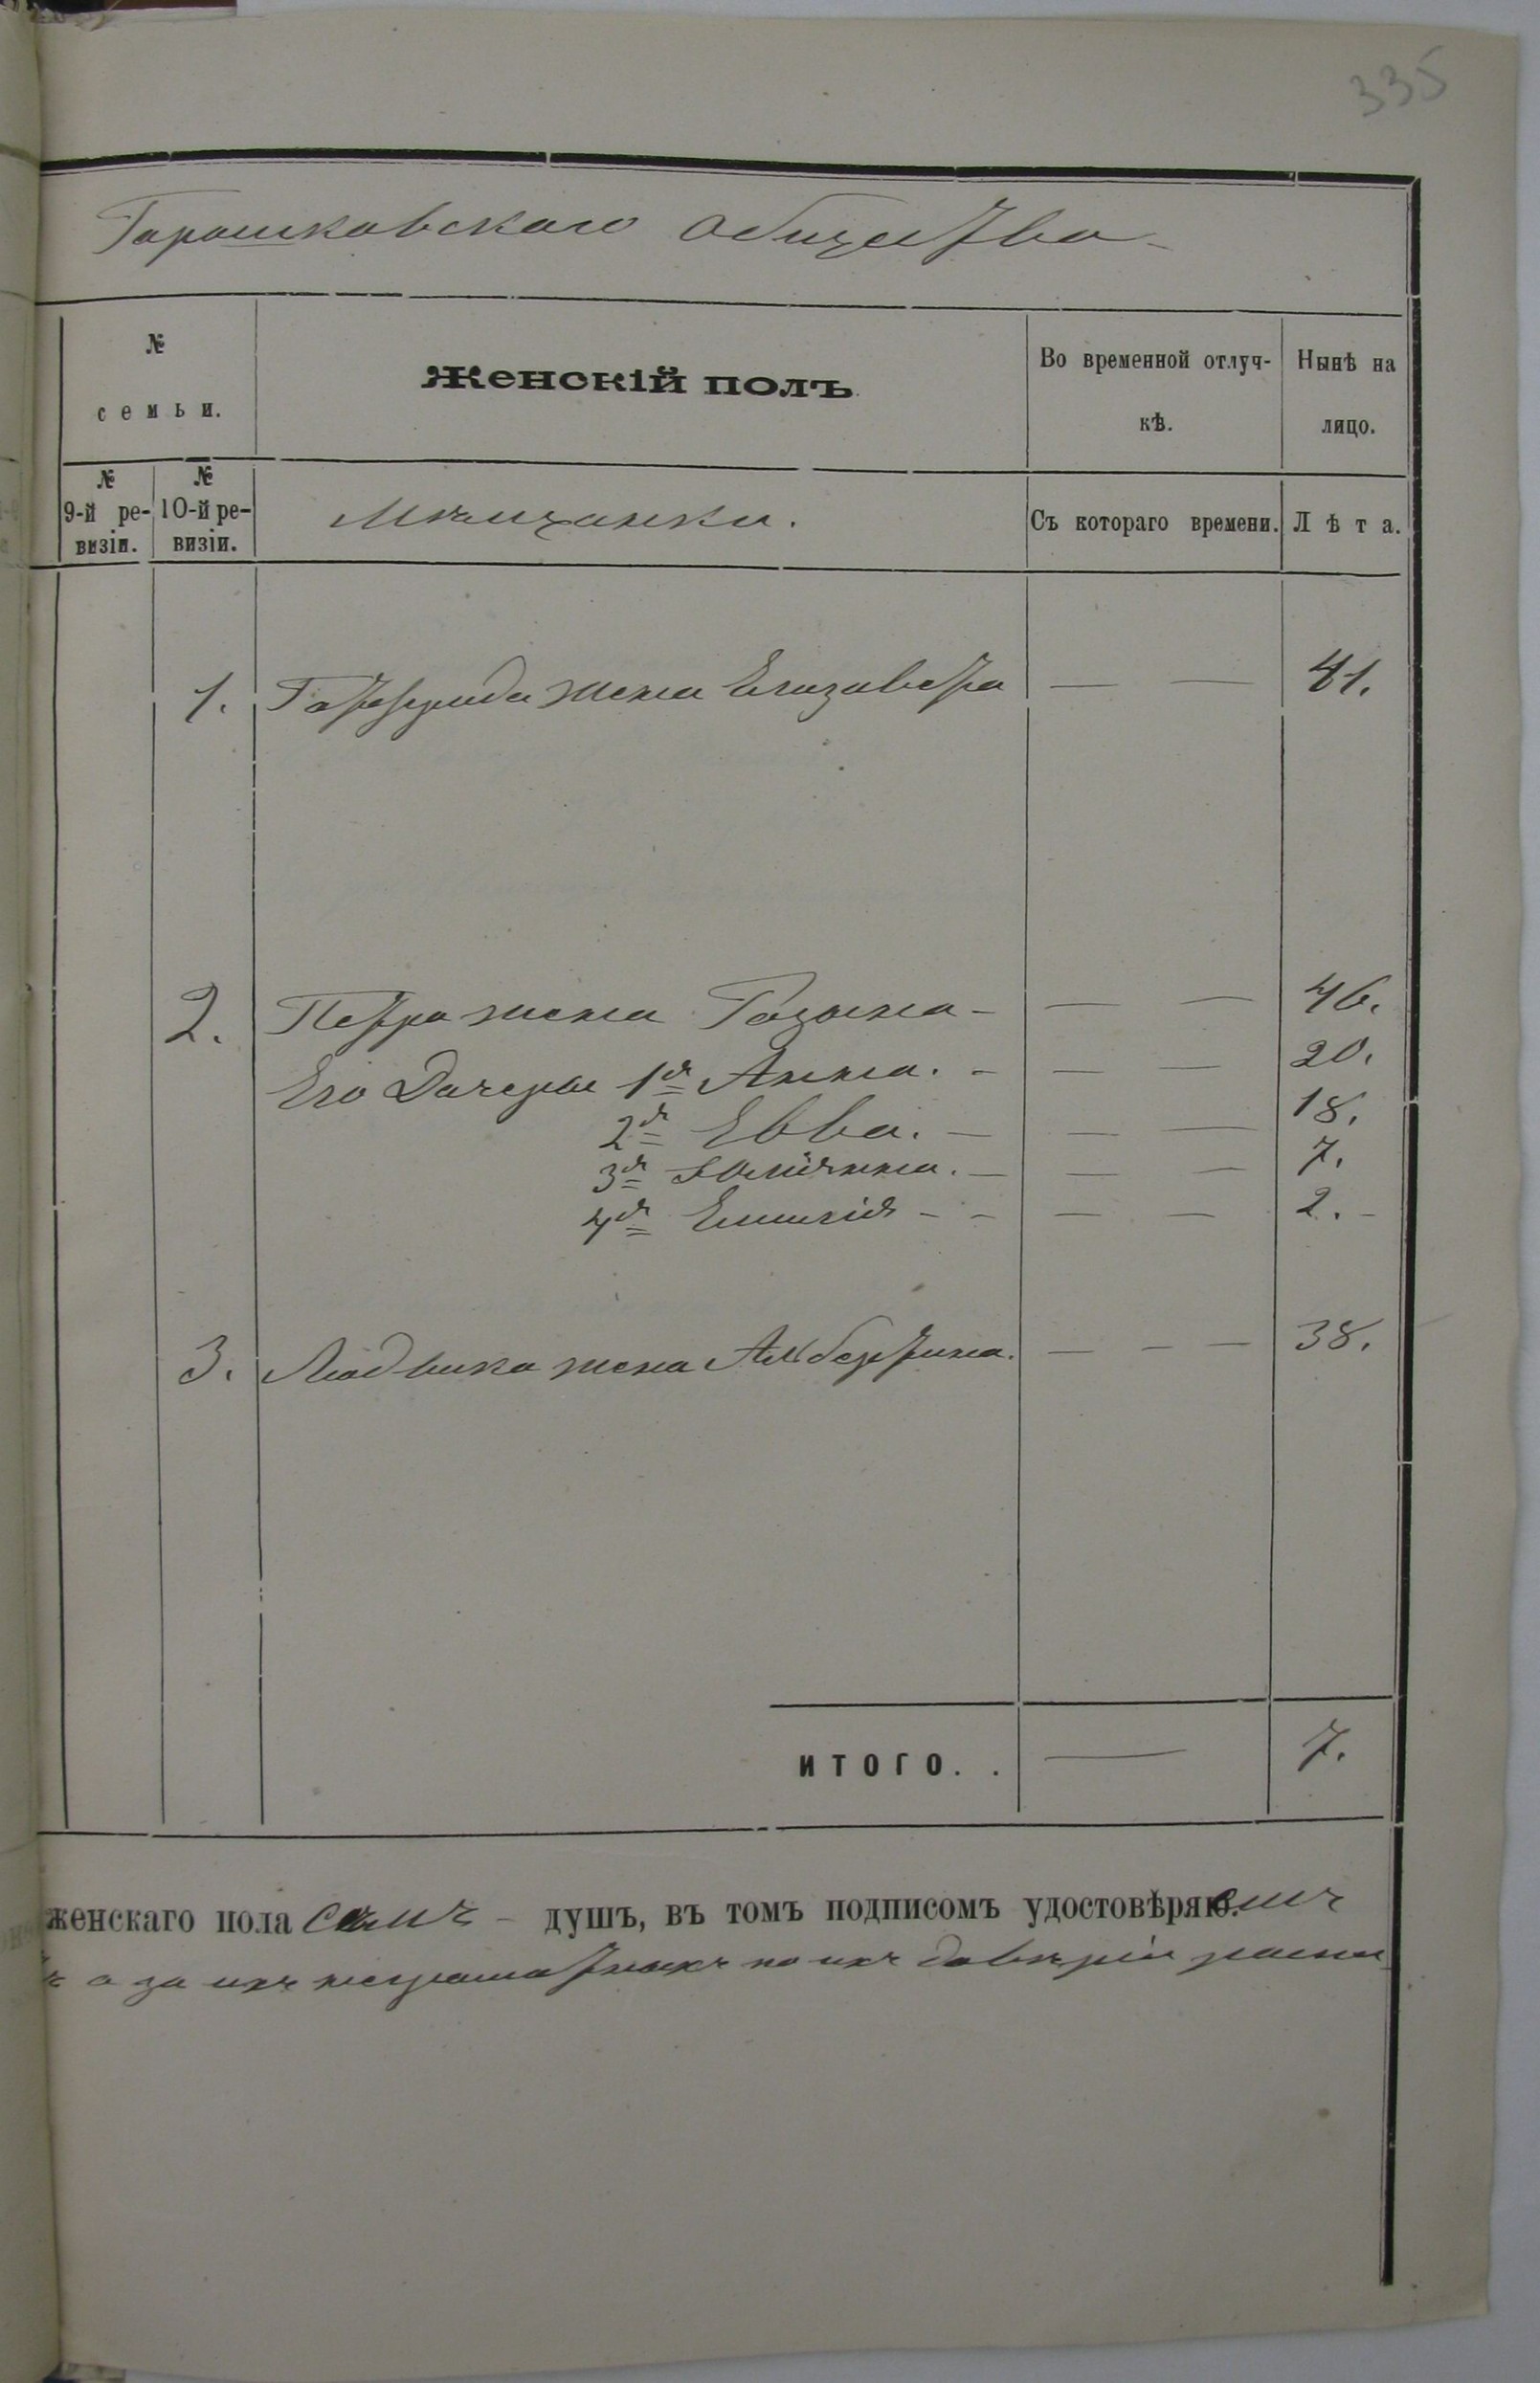 335
Горошковскаго общества
№
семьи.
Женскій полъ
Во временной отлуч-
кѣ.
Нынѣ на
лицо.
№
9-й ре-
визіи.
№
10-й ре-
визіи.
Мѣщанки.
Съ котораго времени.
Лѣта.
1. Готфрида жена Елизавета — — 41.
2. Петра жена Розына — — — 46.
Его Дочеры 1я Анна. — — — 20.
2я Евва. — — — 18.
3я Юліанна. — — — 7.
4я Емилія - - — — 2. -
3. Людвика жена Албертина. — - — 38.
ИТОГО. . — 7.
женскаго пола семь — душъ, въ томъ подписомъ удостовѣряю.
а за ихъ неграматныхъ по ихъ довѣрію